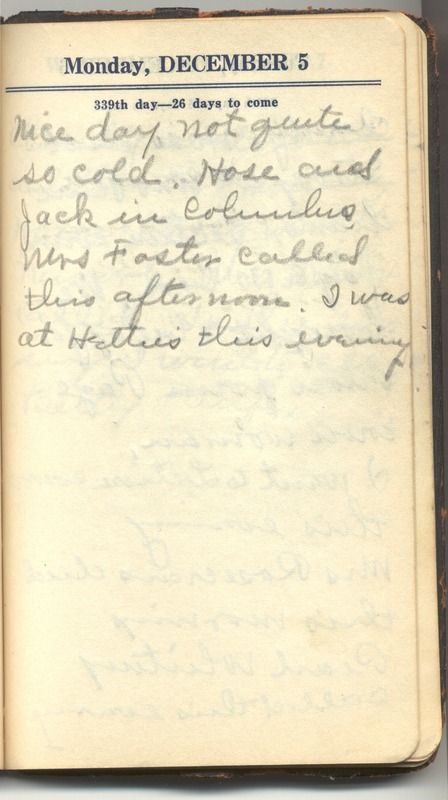 Monday, DECEMBER 5
339th day—26 days to come
Nice day not quite
so cold. Hose and
Jack in Columbus
Mrs Foster called
this afternoon. I was
at Hatties this evening